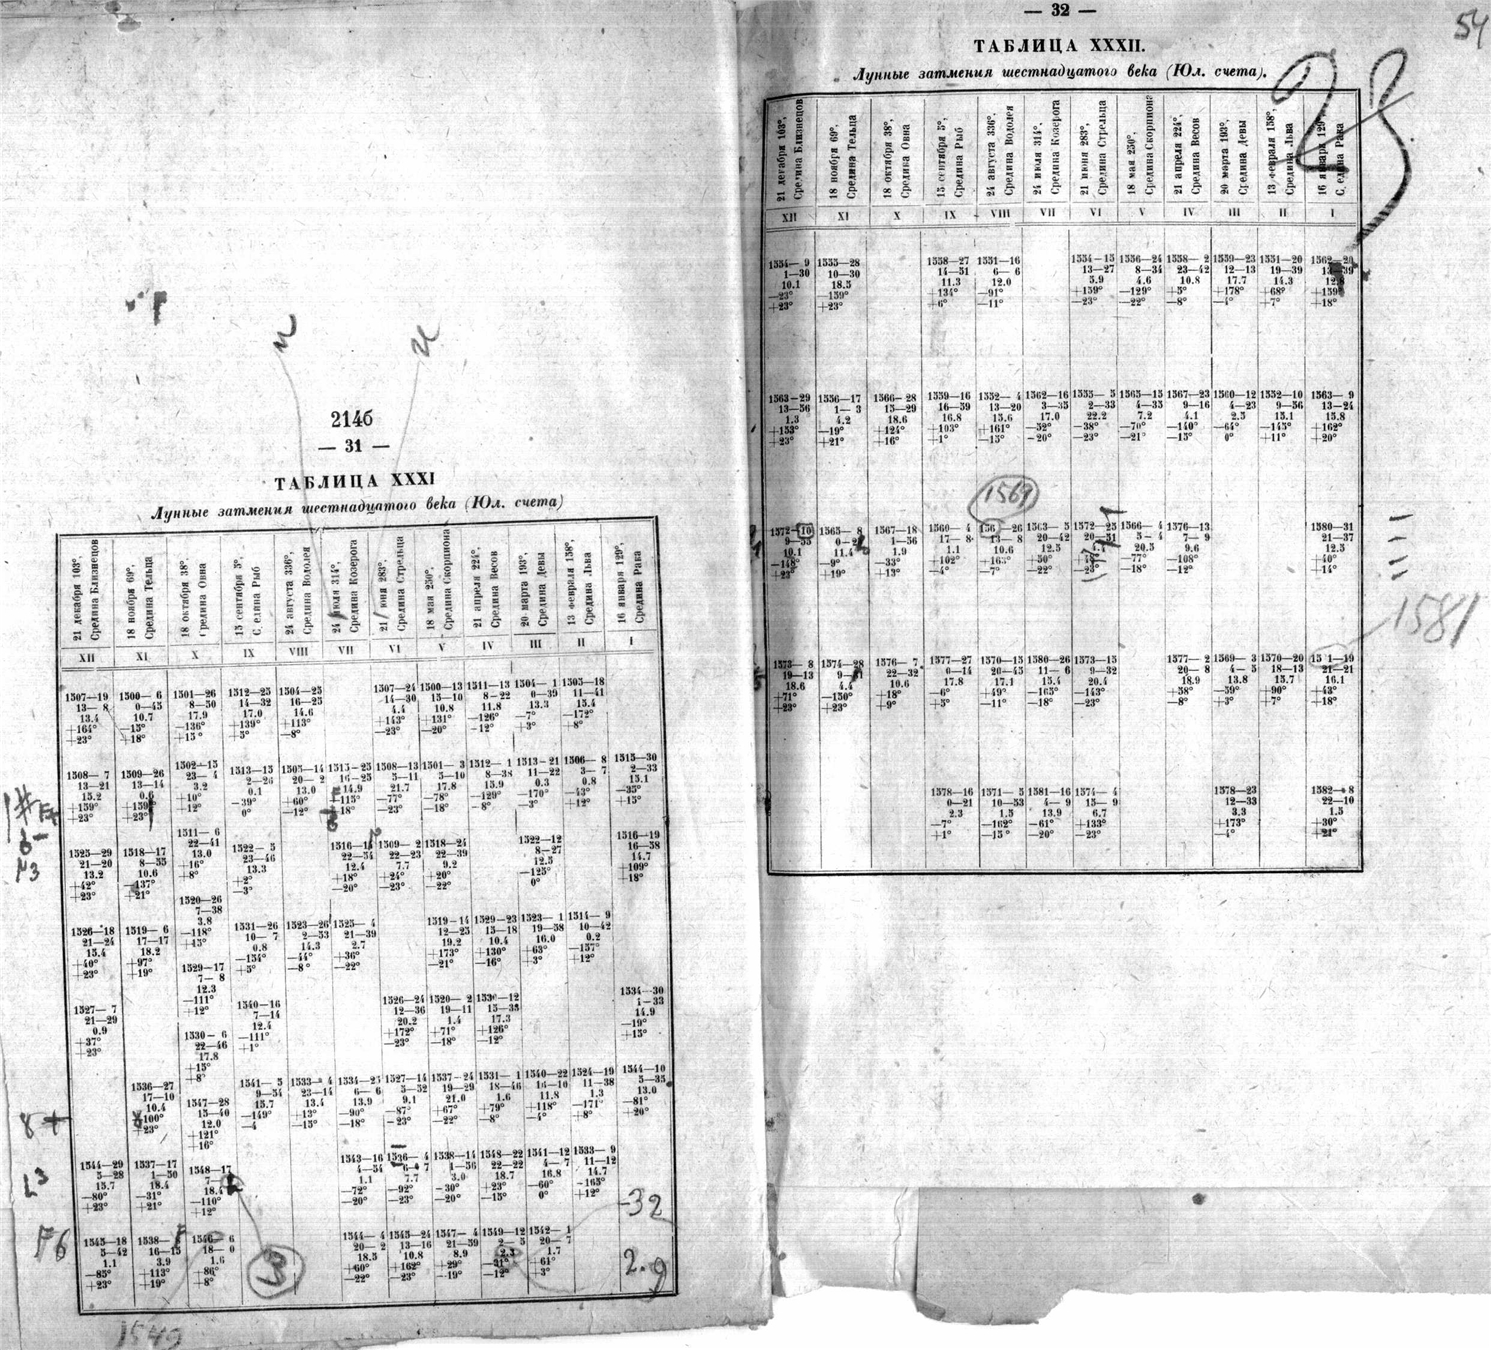 214б
— 31 —
ТАБЛИЦА XXXI
Лунные затмения шестнадцатого века (Юл. счета)
21 декабря 103°, Средина Близнецов
18 ноября 69°, Средина Тельца
18 октября 38°, Средина Овна
15 сентября 5°, Средина Рыб
24 августа 336°, Средина Водолея
24 июля 314°, Средина Козерога
21 июня 283°, Средина Стрельца
18 мая 250°, Средина Скорпиона
21 апреля 224°, Средина Весов
20 марта 193°, Средина Девы
13 февраля 158°, Средина Льва
16 января 129°, Средина Рака
XII XI X IX VIII VII VI V IV III II I
1507—19 1500— 6 1501—26 1512—25 1504—25 1507—24 1500—13 1511—13 1504— 1 1505—18
13— 8 0—45 8—50 14—32 16—25 14—30 15—10 8—22 0—39 11—41
13.4 10.7 17.9 17.0 14.6 4.4 10.8 11.8 13.3 15.4
+164° —15° —136° +139° +113° +143° +131° —126° —7° —172°
+23° +18° +15° +5° —8° —23° —20° —12° +3° +8°
1508— 7 1509—26 1502—15 1513—15 1505—14 1515—25 1508—13 1501— 3 1512— 1 1513—21 1506— 8 1515—30
13—21 13—14 23— 4 2—26 20— 2 16—25 5—11 5—10 8—38 11—22 3— 7 2—33
15.2 0.6 3.2 0.1 13.0 14.9 21.7 17.8 15.9 0.3 0.8 15.1
+159° +159° +10° —39° +60° +115° —77° —78° —129° —170° —43° —35°
+23° +23° +12° 0° —12° —23° —18° —8° —3° +12° +15°
1525—29 1518—17 1511— 6 1522— 5 1516—13 1509— 2 1518—24 1522—12 1516—19
21—20 8—55 22—41 23—46 22—54 22—23 22—39 8—27 16—58
13.2 10.6 13.0 13.3 12.4 7.7 9.2 12.5 14.7
+42° —137° +16° +2° +18° +24° +20° —125° +109°
+23° +21° +8° —3° —20° —23° —22° 0° +18°
1526—18 1519— 6 1520—26 1531—26 1523—26 1525— 4 1519—14 1529—23 1523— 1 1514— 9
21—24 17—17 7—38 10— 7 2—53 21—39 12—25 15—18 19—58 10—42
15.4 18.2 3.8 0.8 14.3 2.7 19.2 10.4 16.0 0.2
+40° +97° —118° —154° —44° +36° +173° +130° +63° —157°
+23° +19° +15° +5° —8° —22° —21° —16° +3° +12°
1527— 7 1529—17 1540—16 1526—24 1520— 2 1530—12 1534—30
21—29 7— 8 7—14 12—36 19—11 15—35 1—33
0.9 12.3 12.4 20.2 1.4 17.3 14.9
+37° —111° —111° +172° +71° +126° —19°
+23° +12° +1° —23° —18° —12° +15°
1530— 6
22—46
17.8
+15°
+8°
1536—27 1547—28 1541— 5 1533— 4 1534—25 1527—14 1537—24 1531— 1 1540—22 1524—19 1544—10
17—10 15—40 9—54 23—14 6— 6 5—52 19—29 18—46 16—10 11—38 5—35
10.4 12.0 15.7 13.4 13.9 9.1 21.0 1.6 11.8 1.3 13.0
+100° +121° —149° +13° —90° —87° +67° +79° +118° —171° —81°
+23° +16° —4 —15° —18° —23° —22° —8° —4° +8° +20°
1544—29 1537—17 1548—17 1543—16 1536— 4 1538—14 1548—22 1541—12 1533— 9
5—28 1—50 4—54 1—56 22—22 4— 7 11—12
15.7 18.4 18.4 1.1 7.7 3.0 18.7 16.8 14.7
—80° —31° —110° —72° —92° —30° +23° —60° —165°
+23° +21° +12° —20° —23° —20° —15° 0° +12°
-32
1545—18 1538— 1546— 6 1544— 4 1545—24 1547— 4 1549—12 1542— 1
5—42 16—15 18— 0 20— 2 13—16 21—59 2— 5 20— 7
1.1 3.9 1.6 18.5 10.8 8.9 2.3 1.7
—85° +113° +86° +60° +162° +29° —21° +61°
+23° +19° +8° —22° —23° —19° —12° +3°
2.9
1549
— 32 —
54
ТАБЛИЦА XXXII.
Лунные затмения шестнадцатого века (Юл. счета).
23
21 декабря 103°, Средина Близнецов
18 ноября 69°, Средина Тельца
18 октября 38°, Средина Овна
15 сентября 5°, Средина Рыб
24 августа 336°, Средина Водолея
24 июля 314°, Средина Козерога
21 июня 283°, Средина Стрельца
18 мая 250°, Средина Скорпиона
21 апреля 224°, Средина Весов
20 марта 193°, Средина Девы
13 февраля 158°, Средина Льва
16 января 129°, Средина Рака
XII XI X IX VIII VII VI V IV III II I
1554— 9 1555—28 1558—27 1551—16 1554—15 1556—24 1558— 2 1559—23 1551—20 1562—20
1—30 10—30 14—51 6— 6 13—27 8—34 23—42 12—13 19—39 13—39
10.1 18.5 11.3 12.0 5.9 4.6 10.8 17.7 14.3 12.8
—23° —159° +134° —91° +159° —129° +5° +178° +68° +159°
+23° +23° +6° —11° —23° —22° —8° —4° +7° +18°
1563—29 1556—17 1566—28 1559—16 1552— 4 1562—16 1555— 5 1565—15 1567—23 1560—12 1552—10 1563— 9
13—56 1— 3 15—29 16—59 13—20 3—35 2—33 4—35 9—16 4—23 9—56 13—24
1.3 4.2 18.6 16.8 15.6 17.0 22.2 7.2 4.1 2.5 15.1 15.8
+153° —19° +124° +103° +161° —52° —38° —70° —140° —64° —145° +162°
+23° +21° +16° +1° —15° —20° —23° —21° —15° 0° +11° +20°
1569
1572—10 1565— 8 1567—18 1560— 4 156 —26 1563— 5 1572—25 1566— 4 1576—13 1580—31
9—55 1—56 17— 8 13— 8 20—42 20—51 5— 4 7— 9 21—37
10.1 11.4 1.9 1.1 10.6 12.5 20.5 9.6 12.5
—148° —9° —33° +102° +163° +50° —77° —108° +40°
+23° +19° +13° —4° —7° —22° —23° —18° —12° +14°
1581
1573— 8 1574—28 1576— 7 1577—27 1570—15 1580—26 1573—15 1577— 2 1569— 3 1570—20 15 1—19
19—13 22—32 0—14 20—45 11— 6 9—32 20— 8 4— 5 18—13 21—21
18.6 4.4 10.6 17.8 17.1 15.4 20.4 18.9 13.8 15.7 16.1
+71° —150° +18° —6° +49° —165° —143° +58° —59° +90° +43°
+23° +23° +9° +5° —11° —18° —23° —8° +3° +7° +18°
1578—16 1571— 5 1581—16 1574— 4 1578—23 1582— 8
0—21 10—53 4— 9 15— 9 12—33 22—10
2.3 1.5 13.9 6.7 3.3 1.5
—7° —162° —61° +133° +173° +30°
+1° —15° —20° —23° —4° +21°